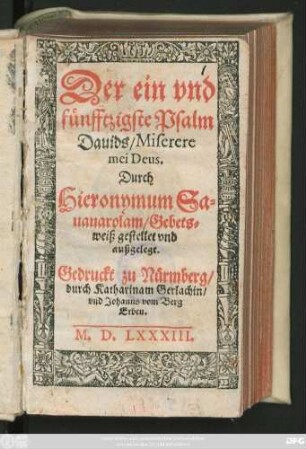 Der ein vnd
fünfftzigste Psalm
Dauids/Miserere
mei Deus.
Durch
Hieronymum Sa-
uanarolam/Gebets-
weiß gestellet vnd
außgelegt.
Gedruckt zu Nürmberg/
durch Katharinam Gerlachin/
vnd Johanns vom Berg
Erben.
M. D. LXXXIII.